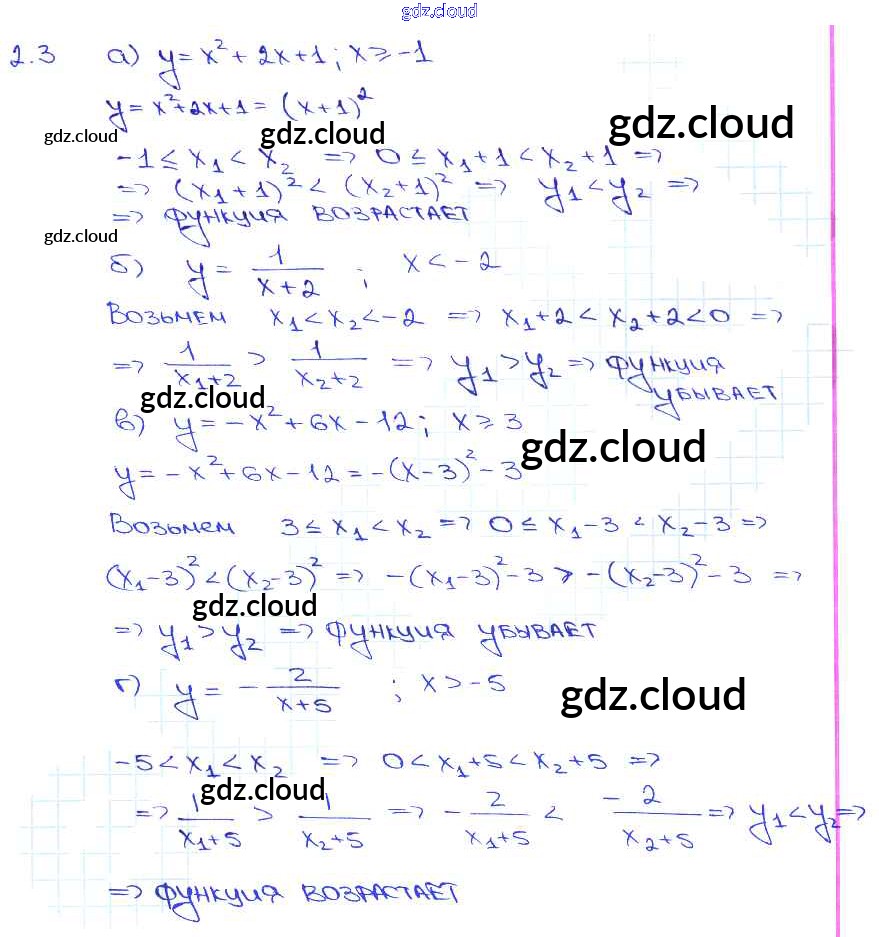 gdz.cloud
2.3 а) y = x² + 2x + 1 ; x ≥ -1
y = x² + 2x + 1 = (x + 1)²
gdz.cloud gdz.cloud gdz.cloud
-1 ≤ x₁ < x₂ => 0 ≤ x₁ + 1 < x₂ + 1 =>
=> (x₁ + 1)² < (x₂ + 1)² => y₁ < y₂ =>
=> функция возрастает
gdz.cloud
б) y = 1/(x + 2) ; x < -2
gdz.cloud
Возьмем x₁ < x₂ < -2 => x₁ + 2 < x₂ + 2 < 0 =>
=> 1/(x₁ + 2) > 1/(x₂ + 2) => y₁ > y₂ => функция
убывает
gdz.cloud
в) y = -x² + 6x - 12 ; x ≥ 3
gdz.cloud
y = -x² + 6x - 12 = -(x - 3)² - 3
Возьмем 3 ≤ x₁ < x₂ => 0 ≤ x₁ - 3 < x₂ - 3 =>
(x₁ - 3)² < (x₂ - 3)² => -(x₁ - 3)² - 3 > -(x₂ - 3)² - 3 =>
gdz.cloud
=> y₁ > y₂ => функция убывает
г) y = - 2/(x + 5) ; x > -5
gdz.cloud
-5 < x₁ < x₂ => 0 < x₁ + 5 < x₂ + 5 =>
gdz.cloud
=> 1/(x₁ + 5) > 1/(x₂ + 5) => - 2/(x₁ + 5) < - 2/(x₂ + 5) => y₁ < y₂ =>
=> функция возрастает